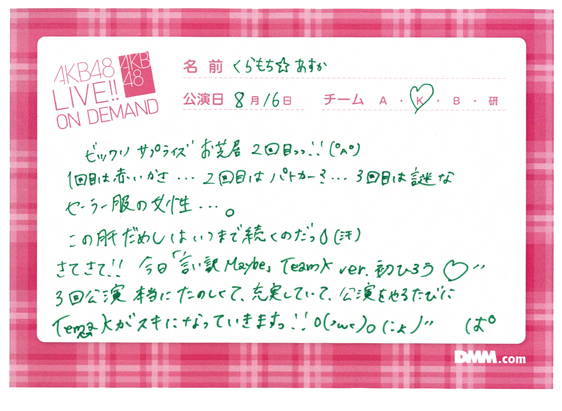 AKB48
LIVE!!
ON DEMAND
AKB
48
名前 くらもち☆あすか
公演日 8月16日 チーム A・K・B・研
ビックリ サプライズ お芝居 2回目っっ!! (°∧°)
1回目は赤いかさ… 2回目はパトカー?… 3回目は謎な
セーラー服の女性…。
この肝だめしはいつまで続くのだっ (汗)
さてさて!! 今日「言い訳Maybe」TeamK ver. 初ひろう ♡"
3回公演 本当にたのしくて、充実していて、公演をやるたびに
TeamKがスキになっていきますっ!!
DMM.com